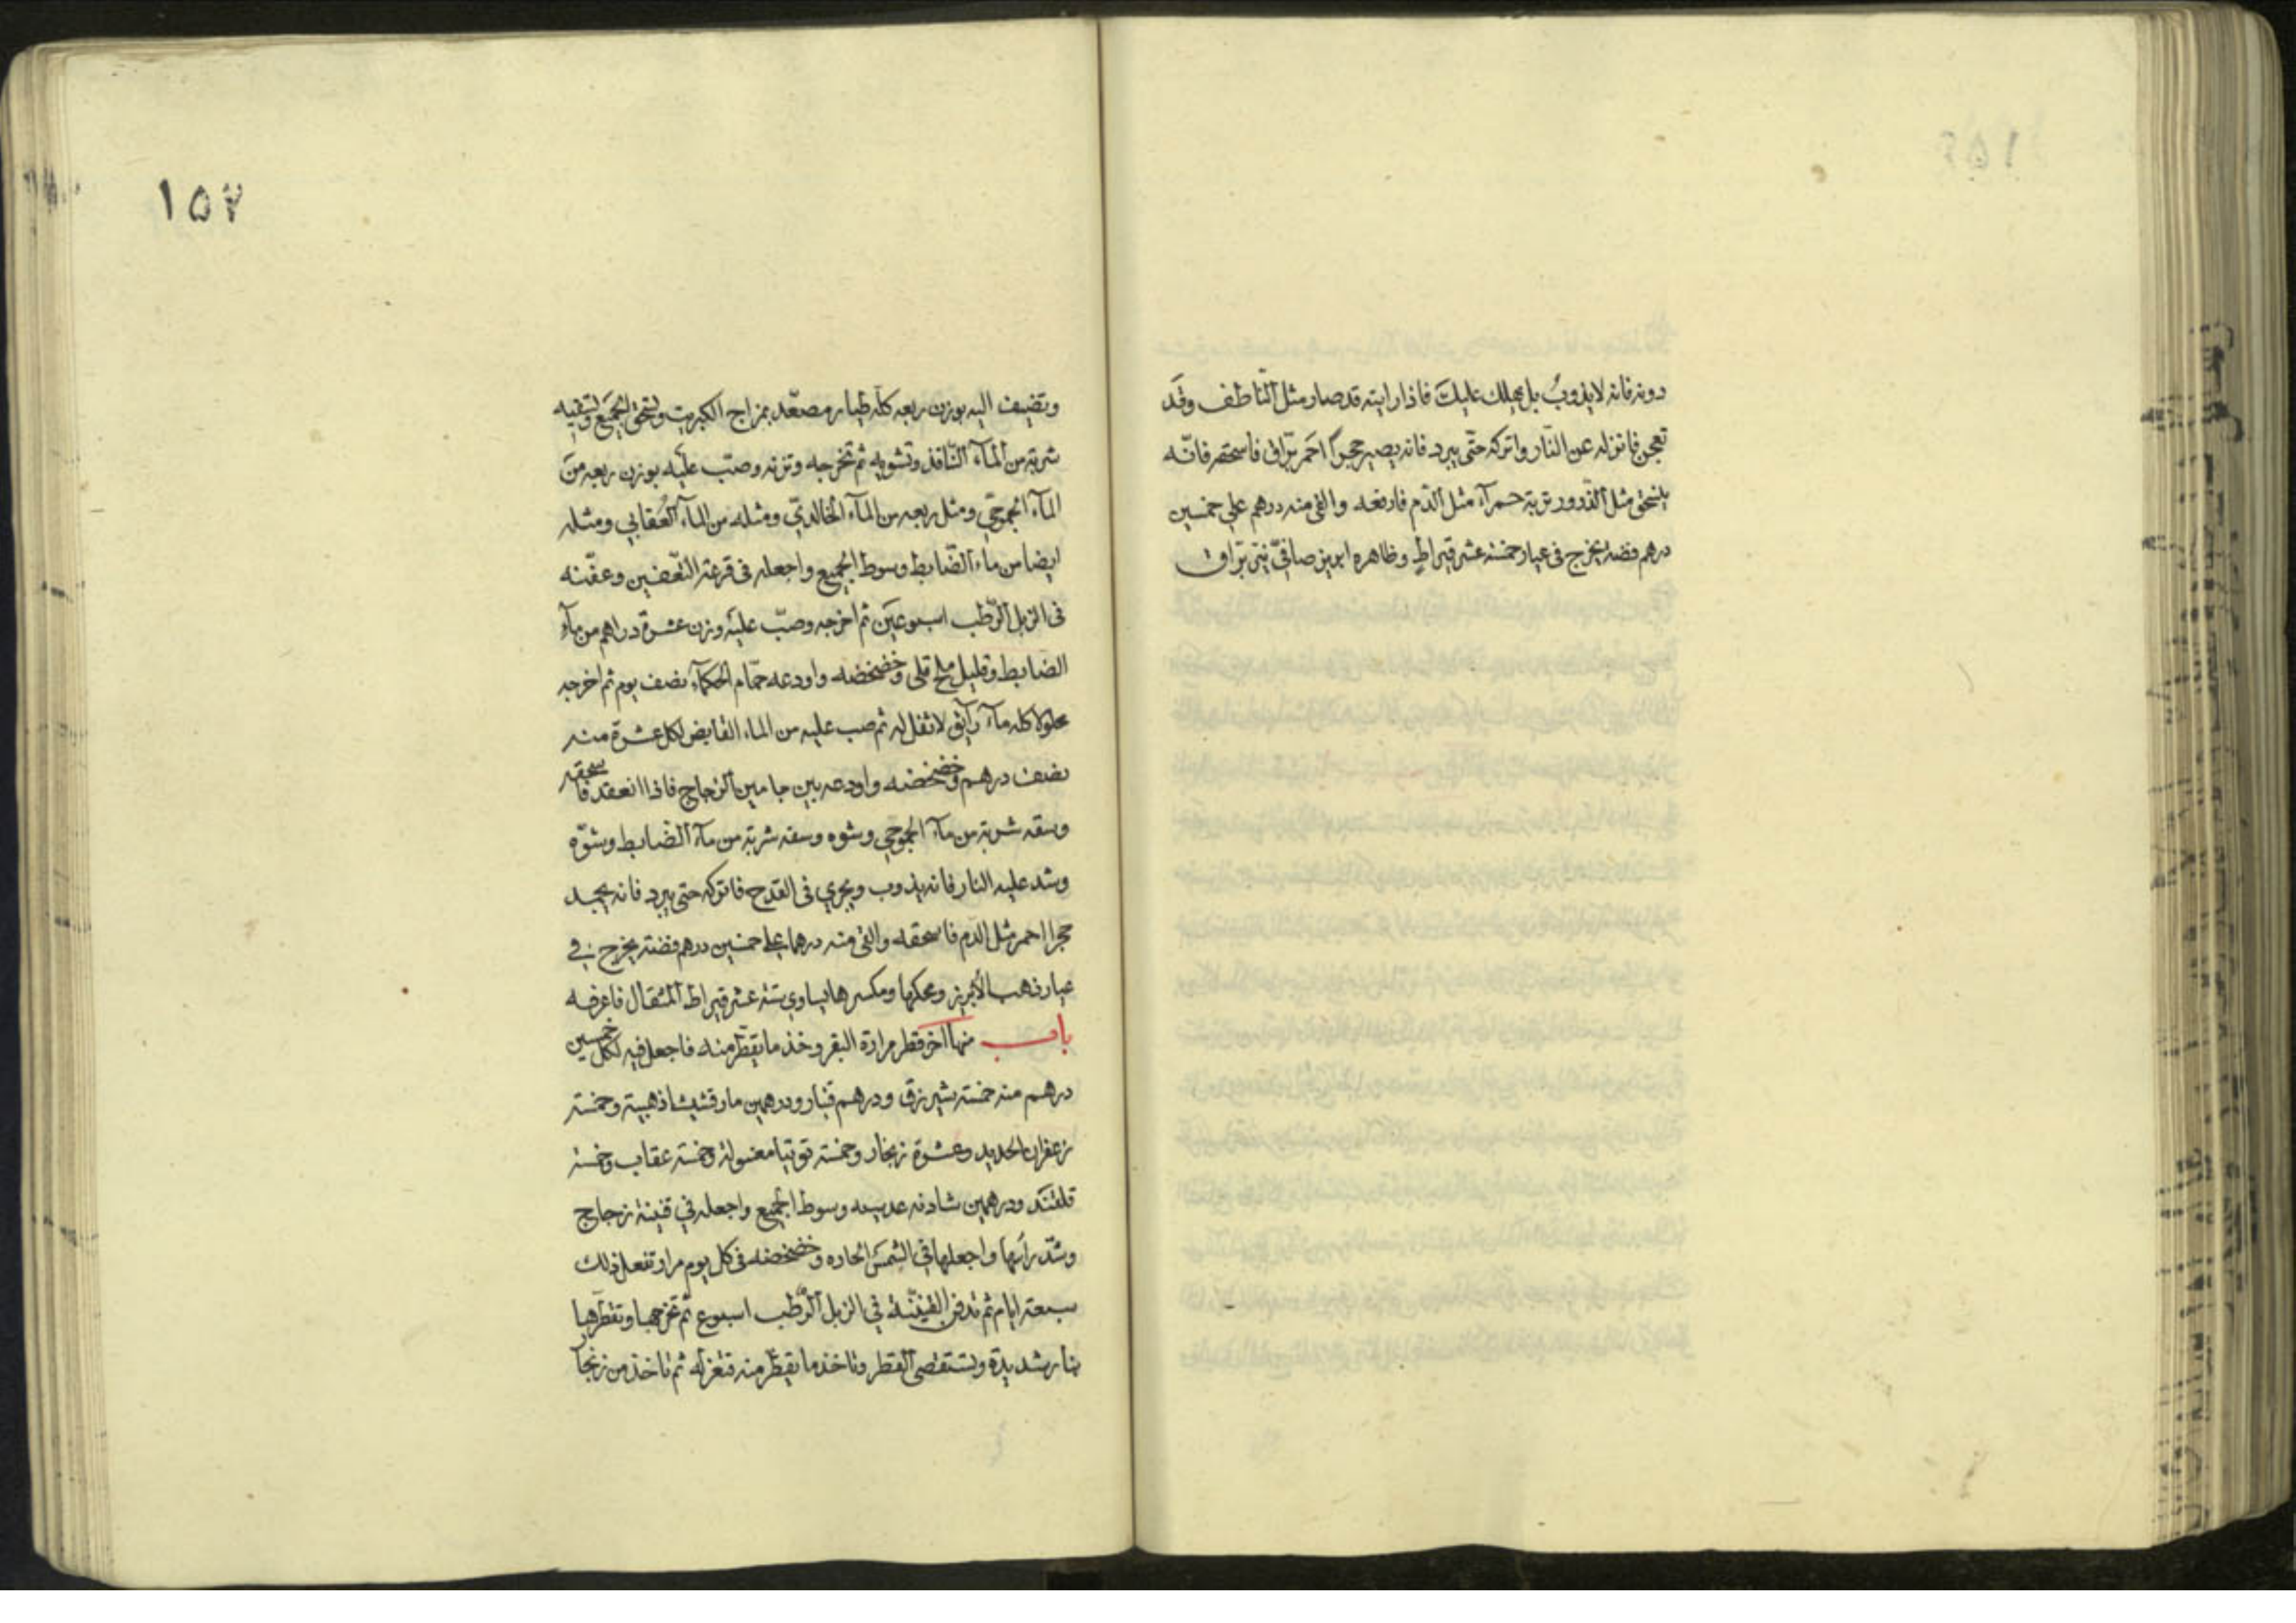 دونه فانه لا يذوب بل يعلك عليك فاذا رايته قد صار مثل الناطف وقد
تعجن فانزله عن النار واتركه حتى يبرد فانه يصير حجرا احمر براق فاسحقه فانه
ينسحق مثل الذرور تربة حمرآء مثل الدم فارفعه والق منه درهم على خمسين
درهم فضة يخرج فى عيار خمسة عشر قيراط وظاهره ابريز صافى براق
١٥٧
وتضيف اليه بوزن ربعه كله طيار مصعد بمزاج الكبريت وتسحق الجميع وتسقيه
شربة من المآء النافذ وتشويه ثم تخرجه وتزنه وصب عليه بوزن ربعه من
المآء ومثل ربعه من المآء الخالدي ومثله من المآء العقابي ومثله
ايضا من مآء الضابط وسوط الجميع واجعله فى قرعة التعفين وعفنه
فى الزبل الرطب اسبوعين ثم اخرجه وصب عليه وزن عشرة دراهم من مآء
الضابط وقليل ملح قلى وخضخضه واودعه حمام الحكمآء نصف يوم ثم اخرجه
محلولا كله مآء رايق لا ثفل له ثم صب عليه من المآء القابض لكل عشرة منه
نصف درهم وخضخضه واودعه بين جامين الزجاج فاذا انعقد فاسحقه
وسقه شربة من مآء وشوه وسقه شربة من مآء الضابط وشوه
وشد عليه النار فانه يذوب ويجري فى القدح فاتركه حتى يبرد فانه يجمد
حجرا احمر مثل الدم فاسحقه والق منه درهما على خمسين درهم فضة يخرج في
عيار ذهب الأبريز ومحكها ومكسرها يساوي ستة عشر قيراط المثقال فاعرفه
باب منها اخر قطر مرارة البقر وخذ ما يقطر منه فاجعل فيه لكل خمسين
درهم منه خمسة شيرزق ودرهم قنبار ودرهمين مارقشيشا ذهبية وخمسة
زعفران الحديد وعشرة زنجار وخمسة توتيا مغسولة وخمسة عقاب وخمسة
قلقند ودرهمين شادنه عدسيه وسوط الجميع واجعله في قنينة زجاج
وشد رأسها واجعلها في الشمس الحاره وخضخضه فى كل يوم مرار تفعل ذلك
سبعة ايام ثم تدفن القنينة في الزبل الرطب اسبوع ثم تخرجها وتقطرها
بنار شديدة وتستقصى القطر وتاخذ ما يقطر منه فتعزله ثم تاخذ من زنجار